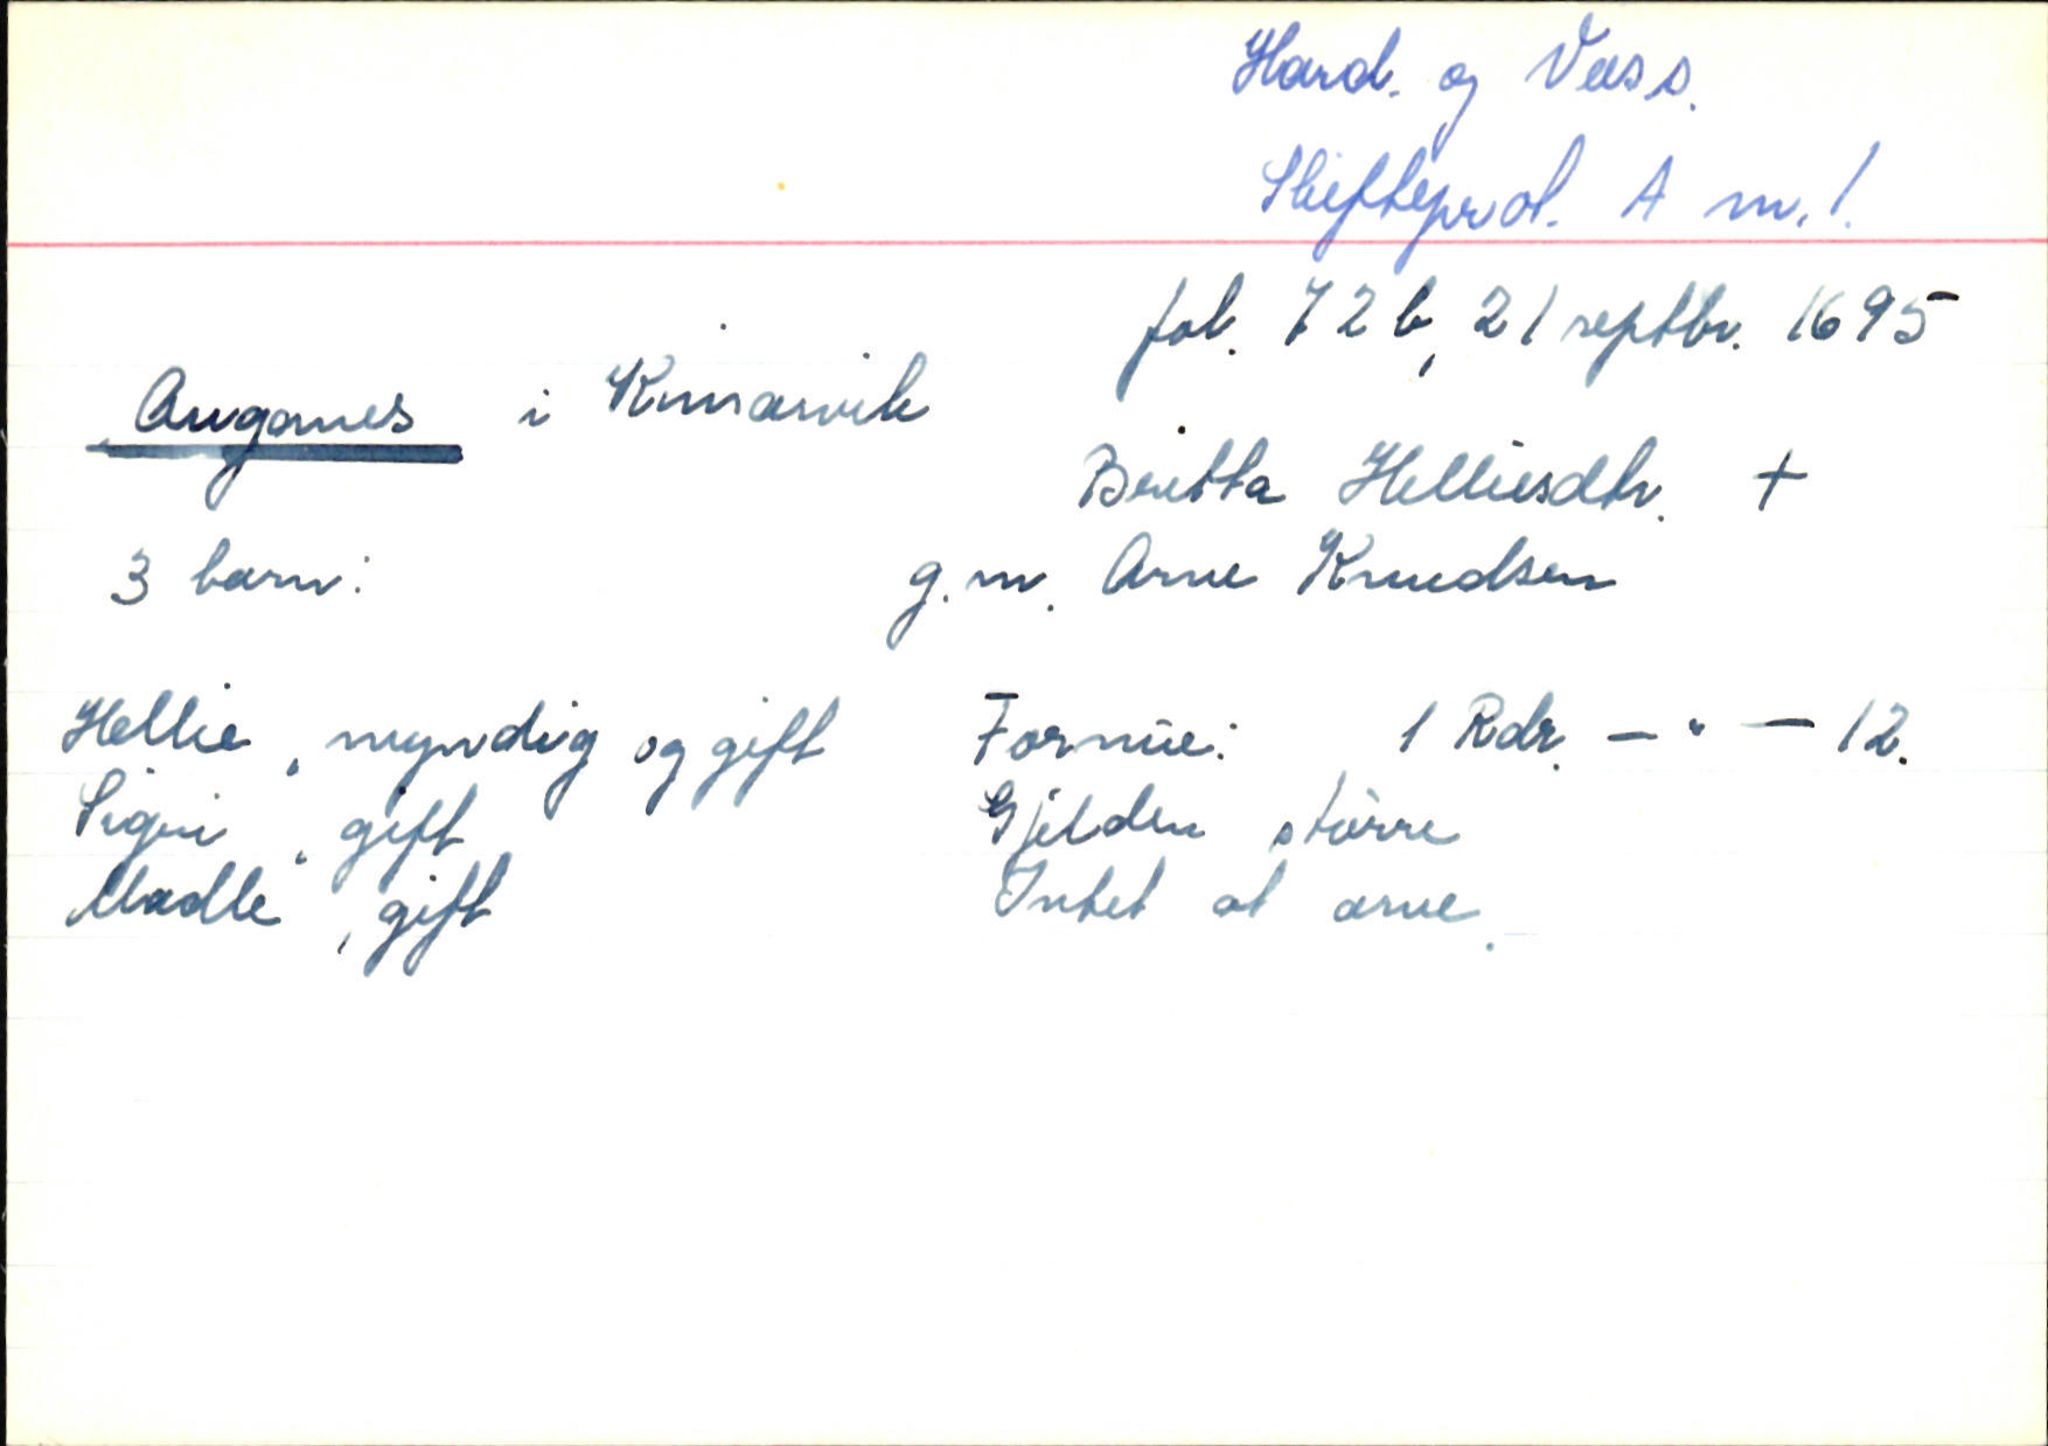 Hard. og Vass.
Skifteprot. A nr. 1.
fol. 72 b, 21 septbr. 1695
Auganes i Kinsarvik
Britta Helliesdtr. +
3 barn:
g. m. Arne Knudsen
Hellie, myndig og gift
Signi, gift
Madle, gift
Formue: 1 Rdr. - " - 12.
Gjelden større
Intet at arve.